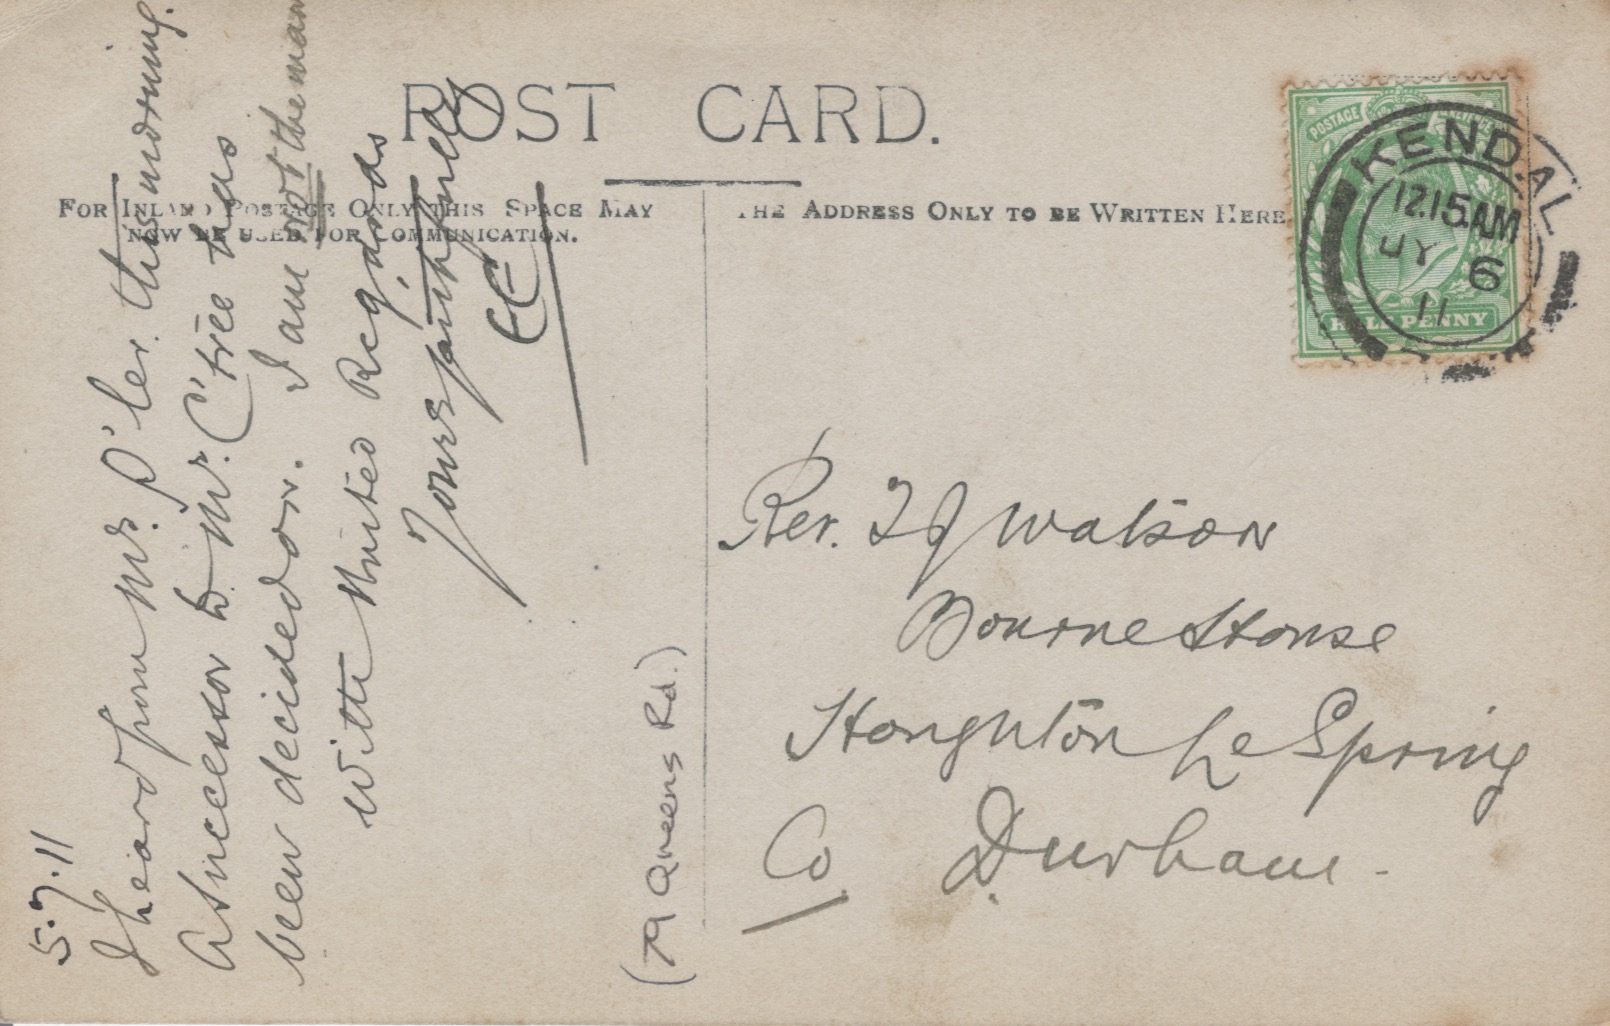 POST CARD.
FOR INLAND POSTAGE ONLY THIS SPACE MAY
NOW BE USED FOR COMMUNICATION.
THE ADDRESS ONLY TO BE WRITTEN HERE
POSTAGE
HALF PENNY
KENDAL
12.15AM
JY 6
11
5.7.11
I heard from Mr. P'ler this morning.
A Successor to Mr. C'tree has
been decided on. I am not the man
With United Regards
Yours faithfully
EC
(79 Queens Rd.)
Rev. T J Watson
Bourne House
Houghton Le Spring
Co Durham.